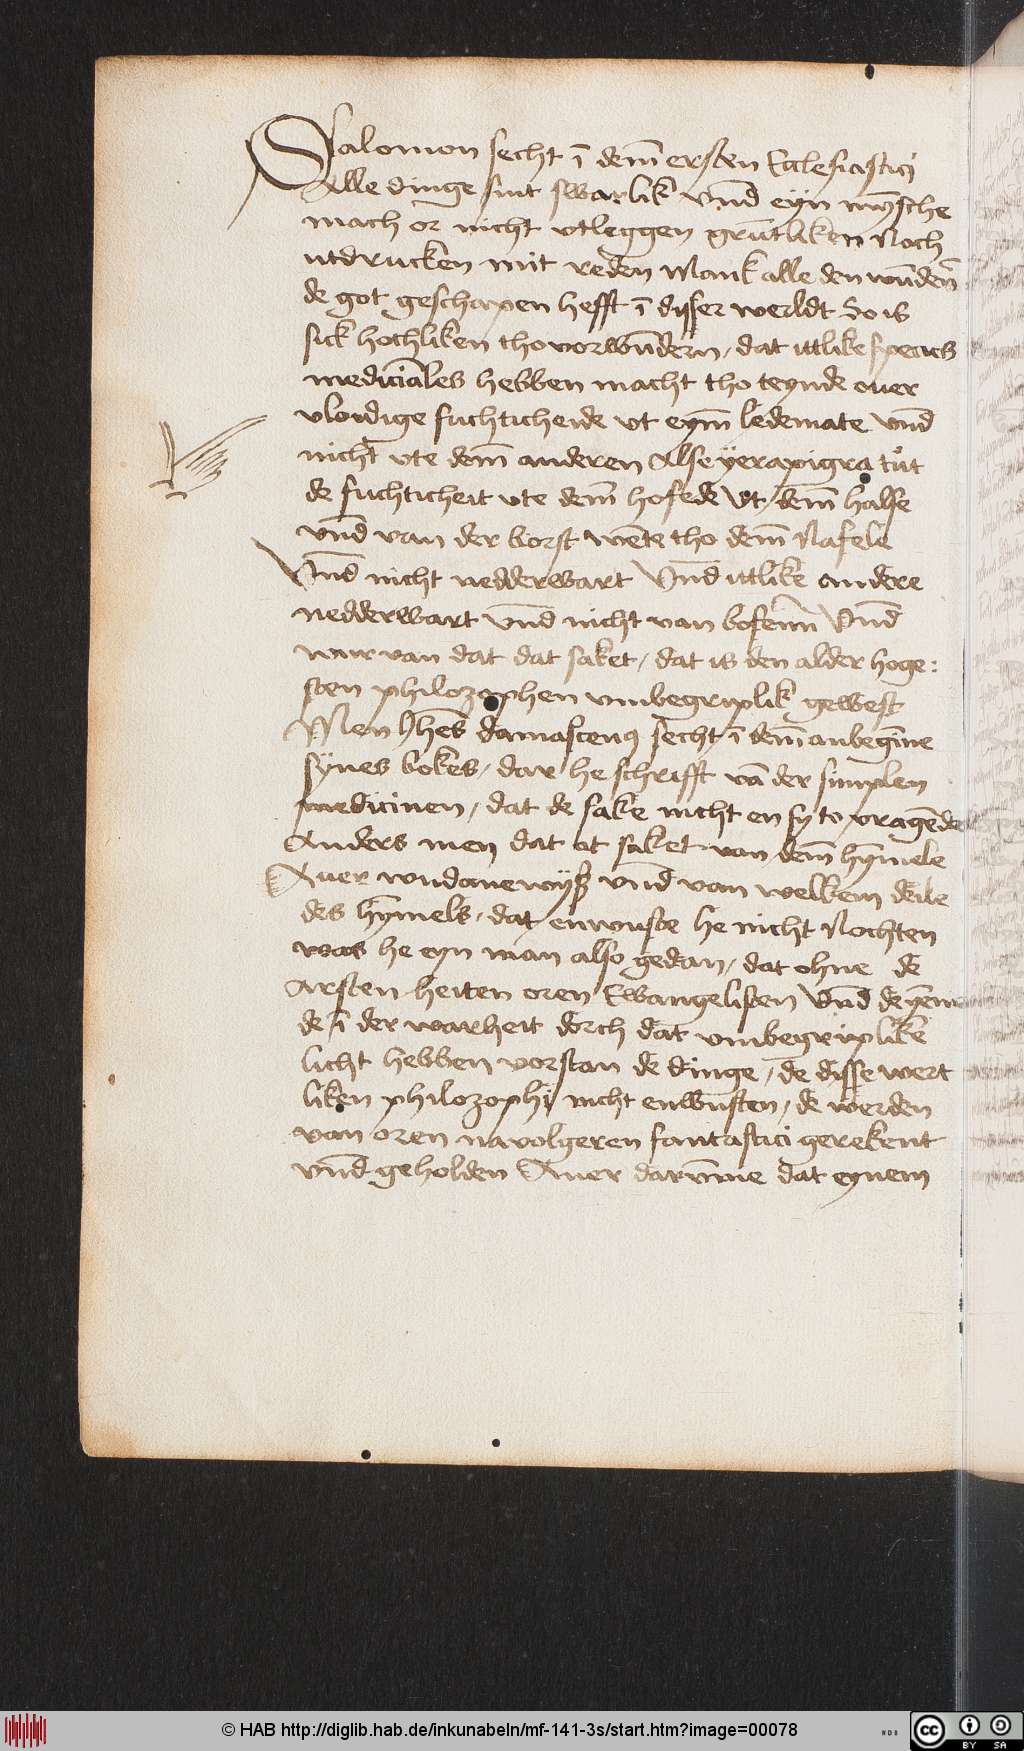 Salomon secht ī dem̄ ersten Ecclesiastici
Alle dinge sint swarlik vnd̄ eyn mȳsche
mach or nicht vtleggen grūtliken Noch
utdrucken mit reden Mank alle den wūdern̄
de got geschapen hefft ī disser werldt So is
sick hochliken tho vorwūdern, dat ittlike species
medicīales hebben macht tho teynde ouer
vlodige fuchticheide vt eym̄ ledemate vnd̄
nicht vte dem̄ anderen Alse yerapigra tut
de fuchticheit vte dem̄ hofede Vt dem̄ halse
vnd̄ van der borst wēte tho dem̄ Nafele
Vnd̄ nicht nedderwart Vnd̄ ittlike andere
nedderwart vnd̄ nicht van bofenn̄ Vnd̄
wur van dat dat saket, dat is den alder hoge:
sten philozophen vmbegriplik gewest
Men Jhēs damascenꝯ secht ī dem̄ anbegīne
synes bokes, dar he schrifft vā der simplen
medicinen, dat de sake nicht en sy to vragēde
Anders men dat it saket van dem̄ hȳmele
Auer wudanewys vnd̄ van welkem deile
des hȳmels, dat enwuste he nicht Nochten
was he eyn man also gedan, dat ohne de
Arsten heiten oren Ewangelisten Vnd̄ de yēne
de ī der warheit dorch dat vmbegriplike
licht hebben vorstan de dinge, de disse wert
liken philozophi nicht enwusten, de werden
van oren navolgeren fantastici gerekent
vnd̄ geholden Auer darūme dat eynem
© HAB http://diglib.hab.de/inkunabeln/mf-141-3s/start.htm?image=00078
cc BY SA